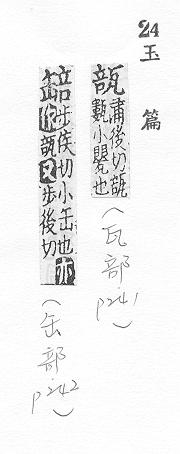 24 玉篇
瓿 蒲後切瓿甊小甖也(瓦部 p241)
䍌 步侯切小缶也亦作瓿又步後切(缶部 p242)